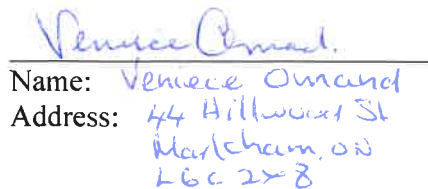 Name: Veniece Omand
Address: 44 Hillwood St
Markham, ON
L6C 2X8